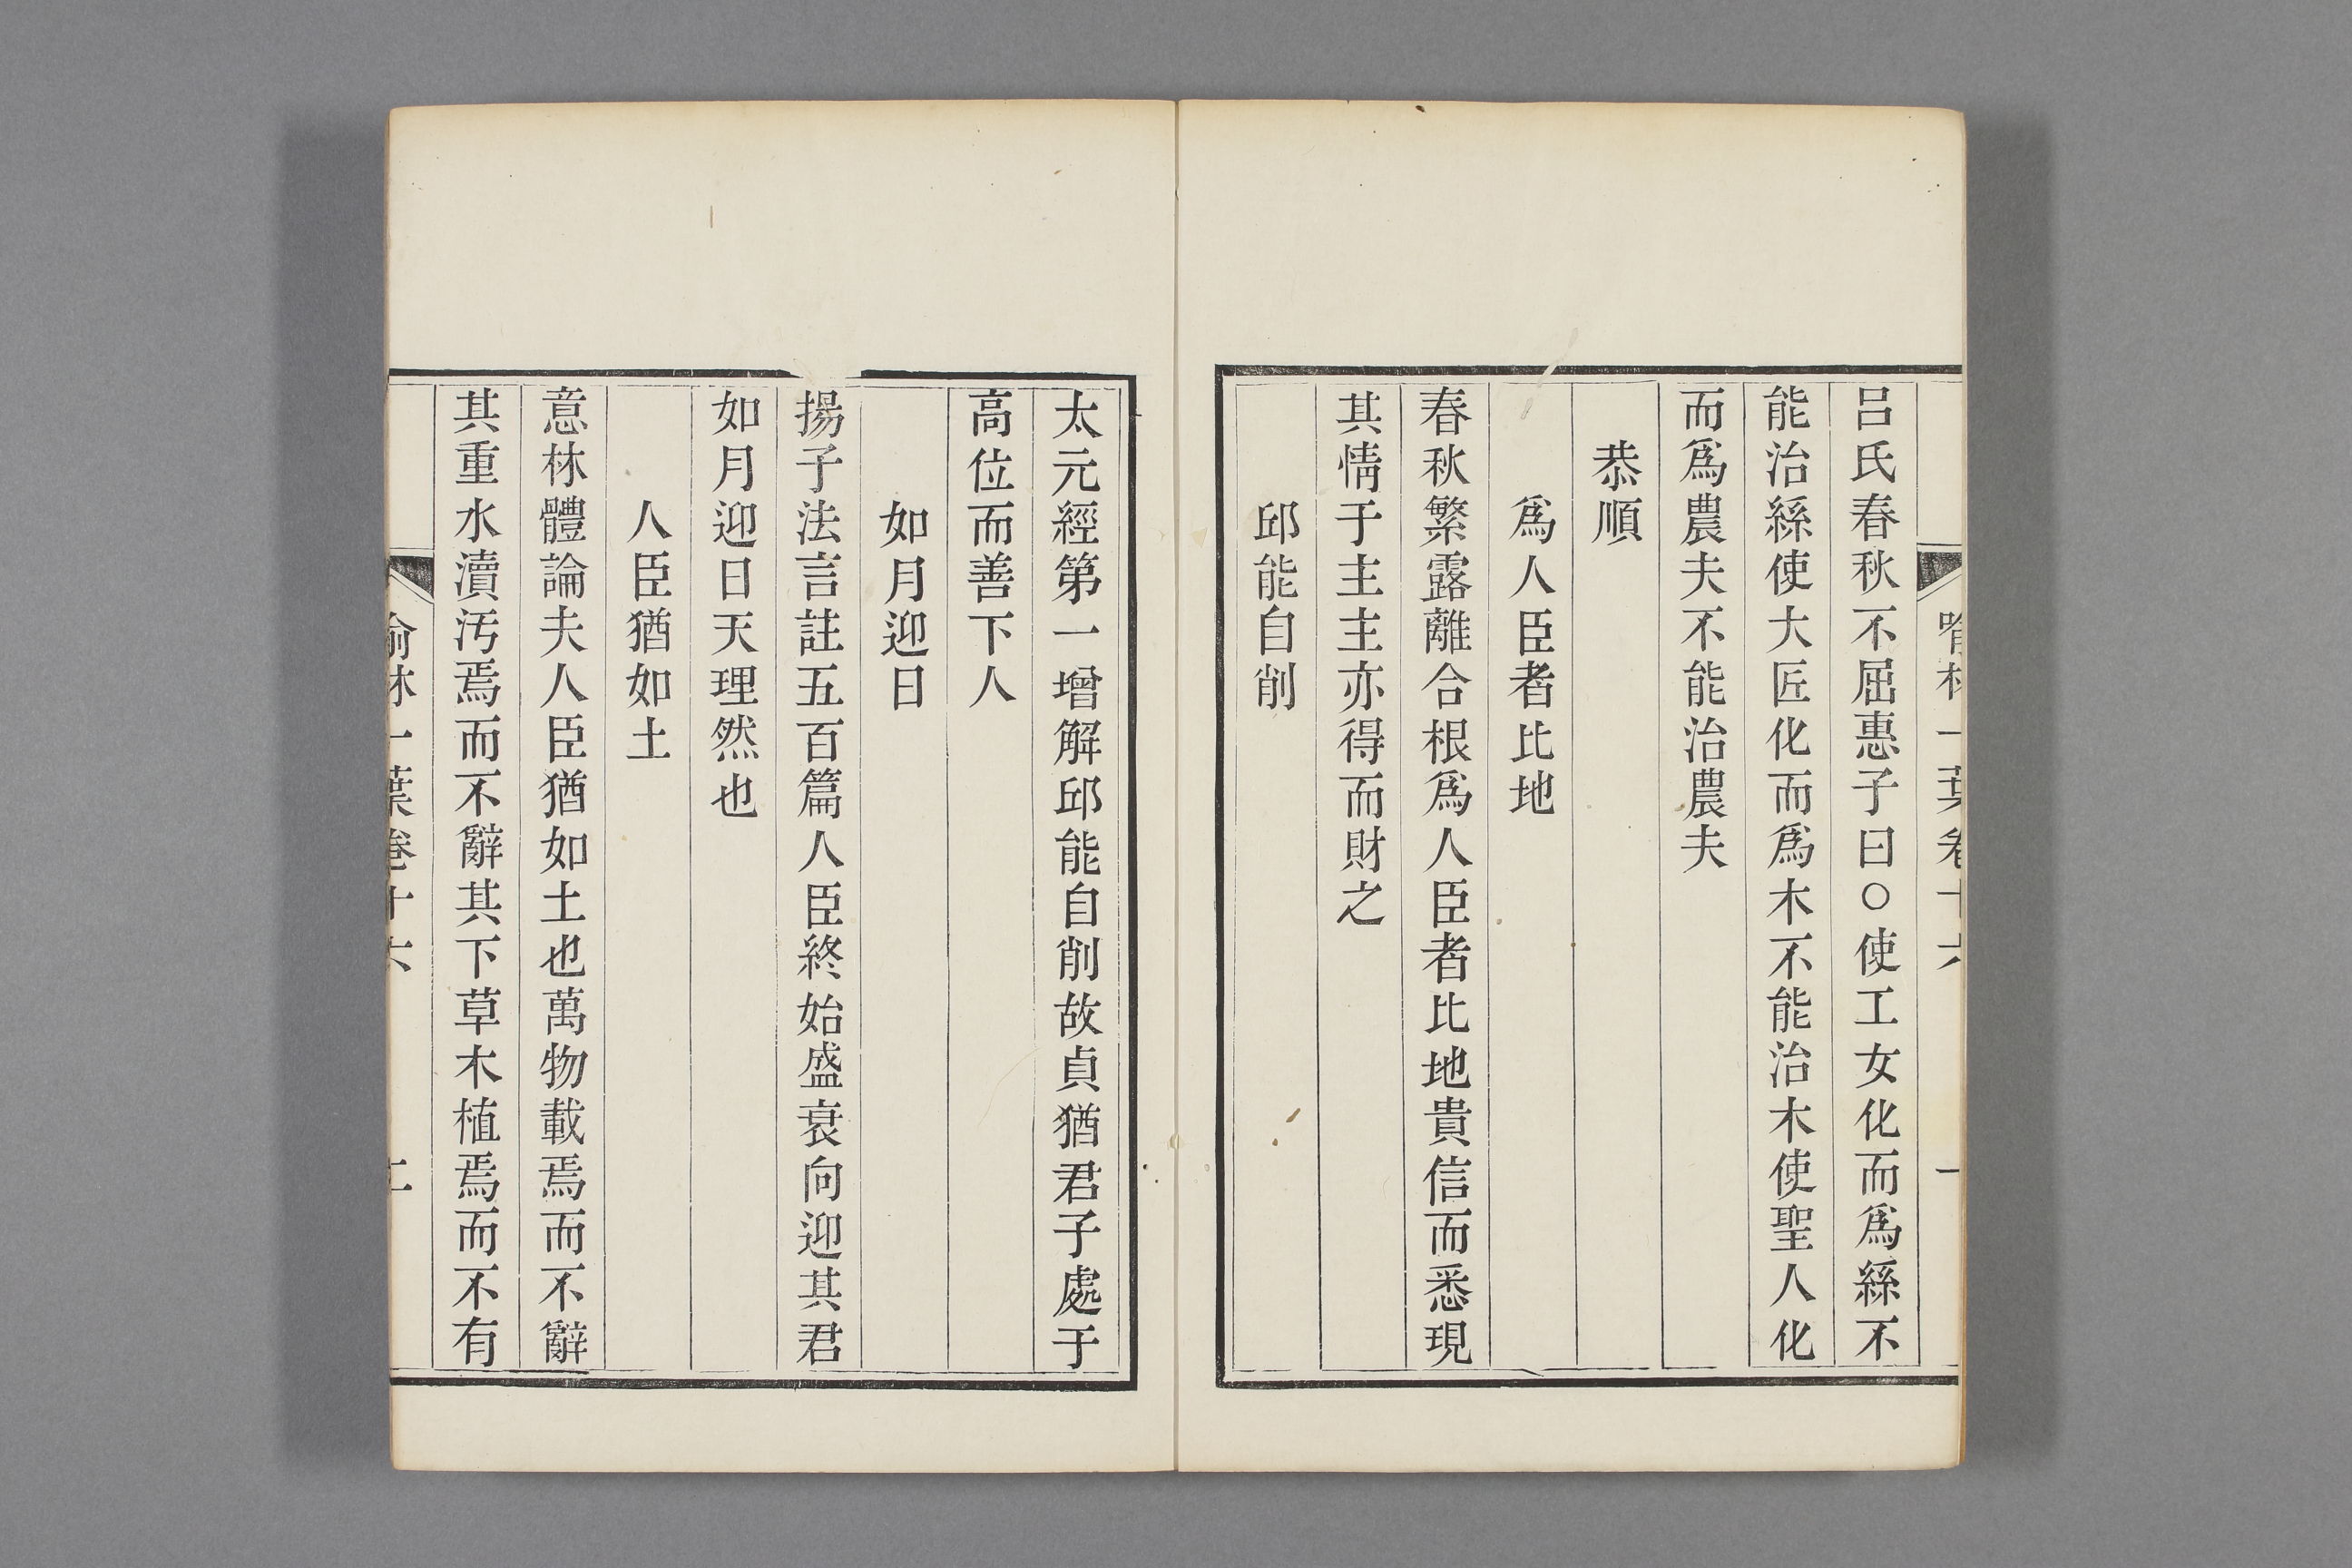 呂氏春秋不屈惠子曰○使工女化而爲絲不
能治絲使大匠化而爲木不能治木使聖人化
而爲農夫不能治農夫
恭順
爲人臣者比地
春秋繁露離合根爲人臣者比地貴信而悉現
其情于主主亦得而財之
邱能自削
太元經第一增解邱能自削故貞猶君子處于
高位而善下人
如月迎日
揚子法言註五百篇人臣終始盛衰向迎其君
如月迎日天理然也
人臣猶如土
意林體論夫人臣猶如土也萬物載焉而不辭
其重水瀆汚焉而不辭其下草木植焉而不有
喻林一葉卷十六